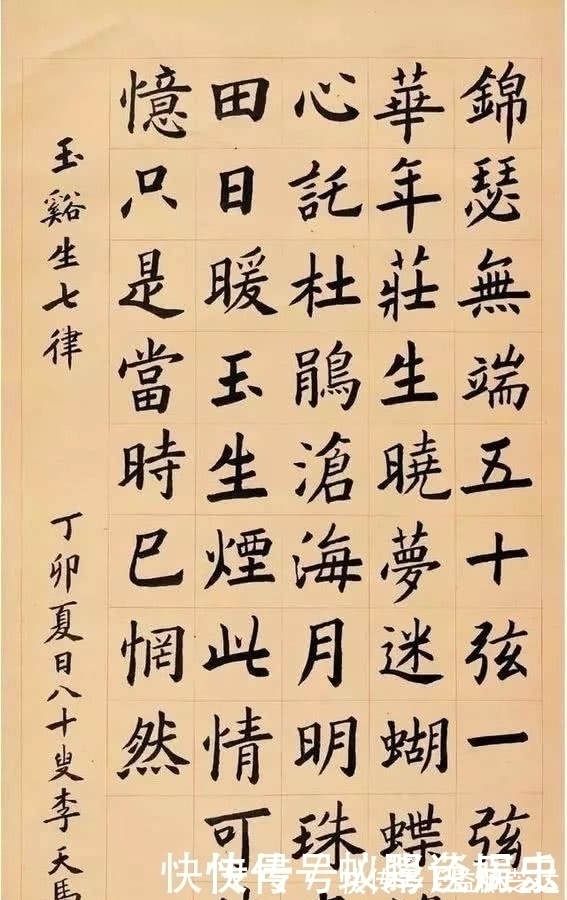 錦瑟無端五十弦一弦
華年莊生曉夢迷蝴蝶
心託杜鵑滄海月明珠
田日暖玉生煙此情可
憶只是當時已惘然
玉谿生七律
丁卯夏日八十叟李天馬